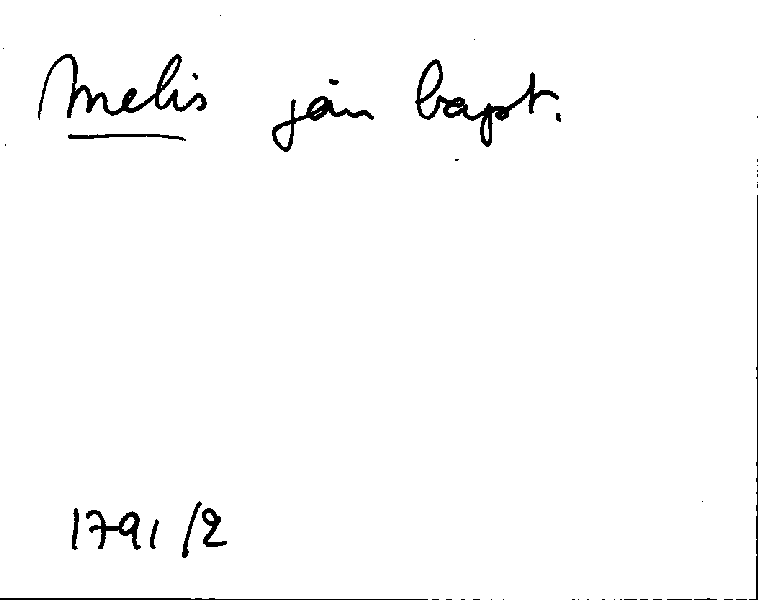 Melis jan bapt.
1791/2